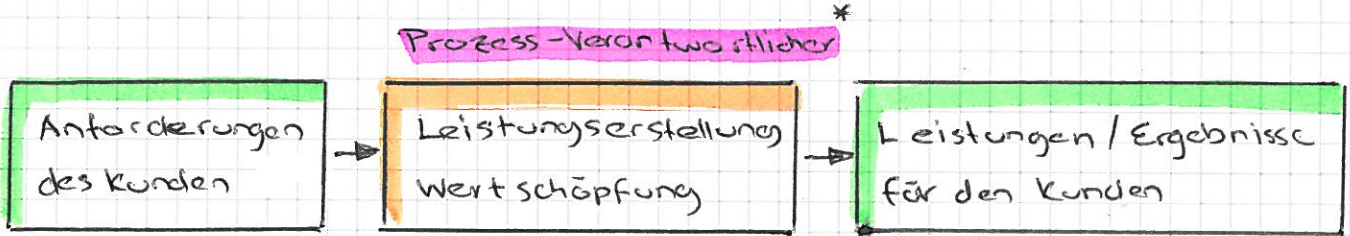 Prozess-Verantwortlicher*
Anforderungen
des Kunden
Leistungserstellung
Wertschöpfung
Leistungen / Ergebnisse
für den Kunden